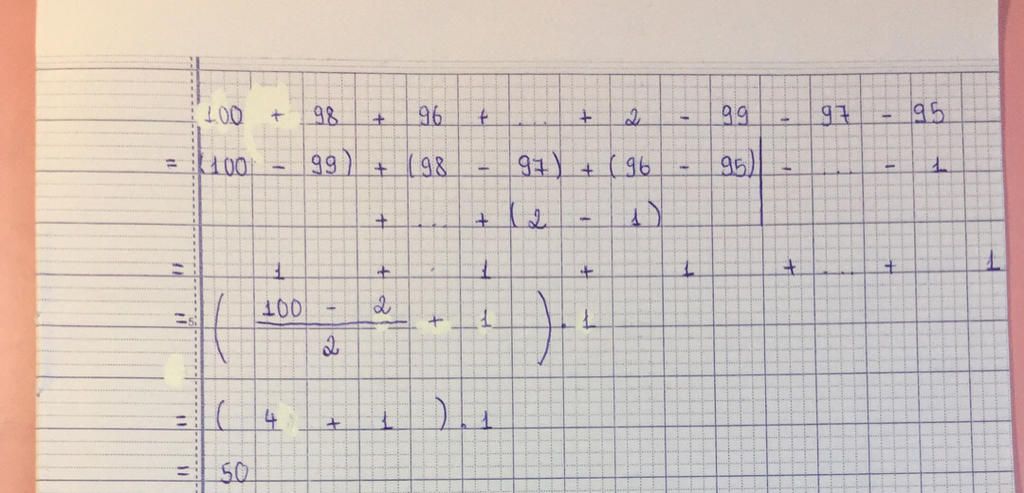 100 + 98 + 96 + ... + 2 - 99 - 97 - 95
- ... - 1
= (100 - 99) + (98 - 97) + (96 - 95)
+ ... + (2 - 1)
= 1 + 1 + 1 + ... + 1
= ( (100 - 2)/2 + 1 ) . 1
= ( 4 + 1 ) . 1
= 50